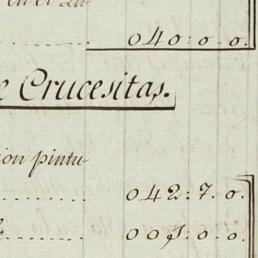 040:0.0.
Crucesitas.
ion pintu
042:7.0.
008:0.0.